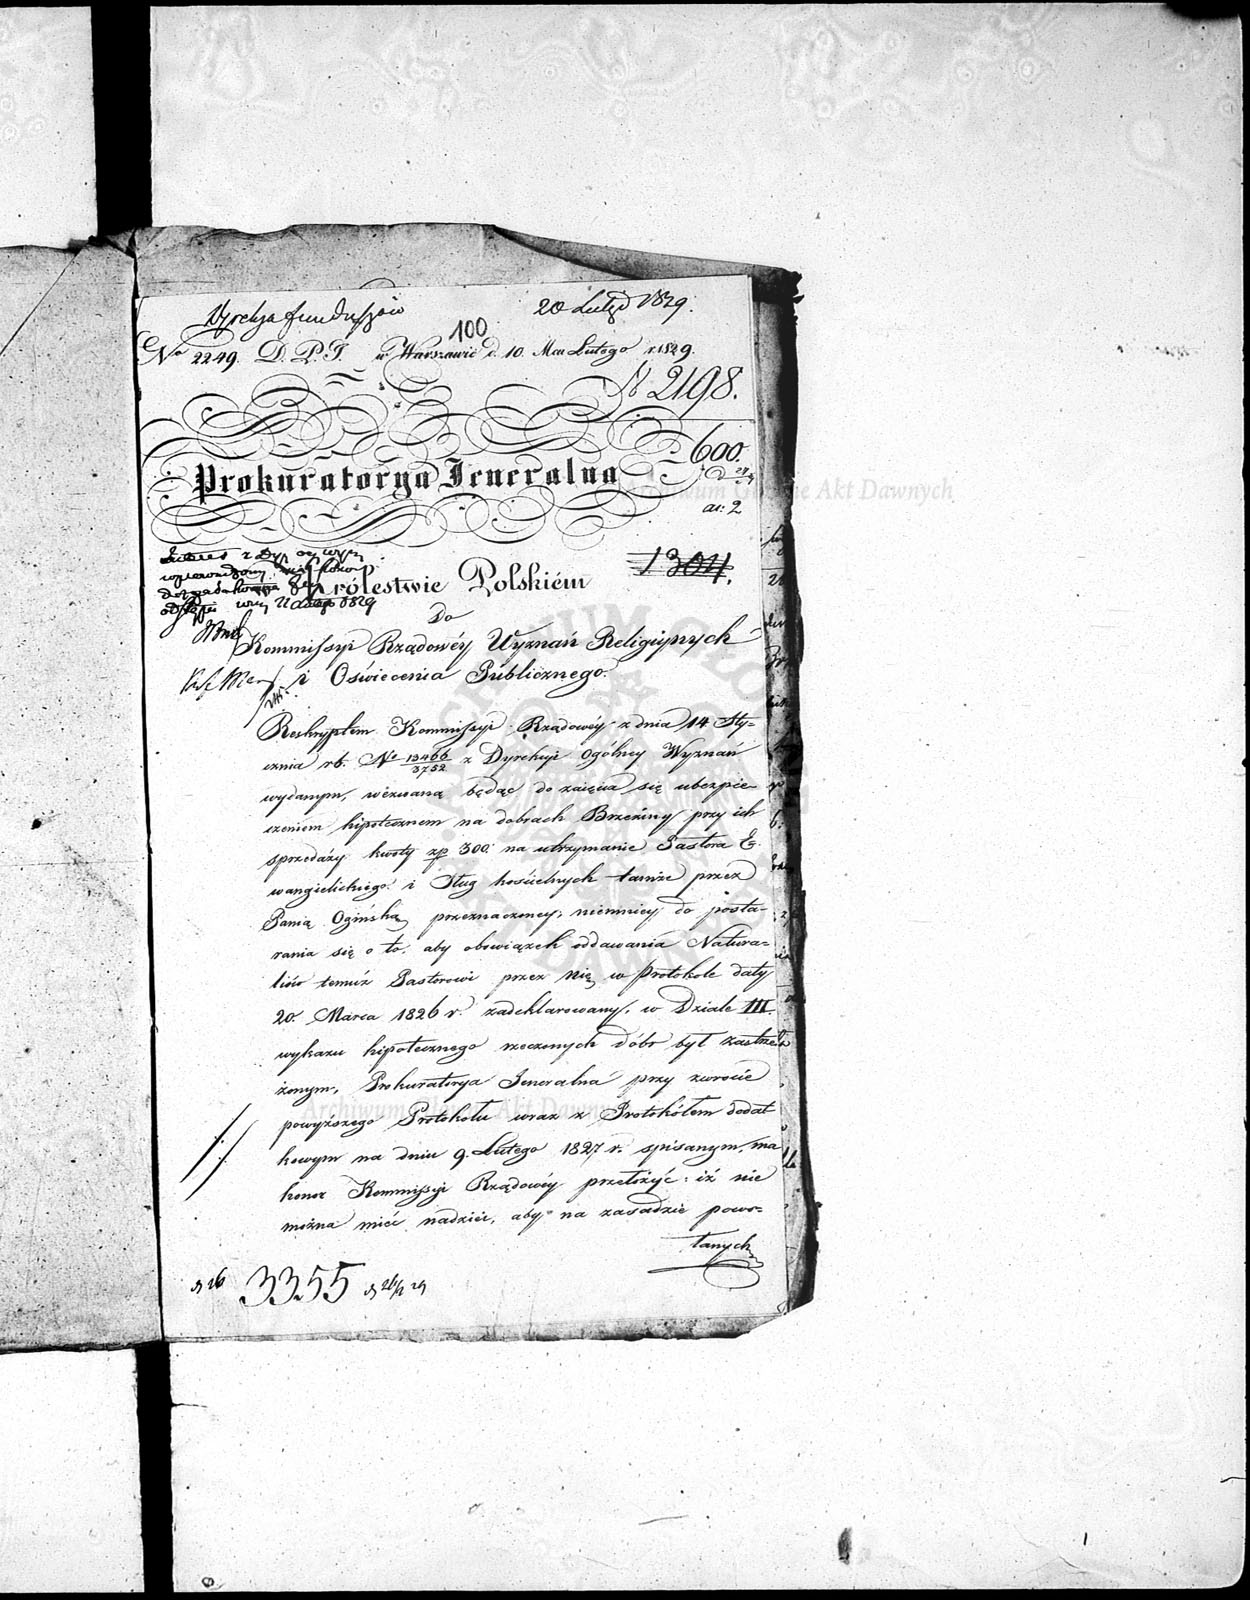 Dyrekcya funduszów
20 Luteg 1829.
100
No 2249. D. P. J. w Warszawie d. 10. Mca Lutego r. 1829.
N 2198.
600.
Prokuratorya Jeneralna
ar: 2
w Królestwie Polskiém
1304.
Do
Kommissyi Rządowéy Wyznań Religiynych
i Oświecenia Publicznego.
Reskryptem Kommissyi Rządowéy z dnia 14 Sty-
cznia rb. No 13466/3752 z Dyrekcyi Ogólney Wyznań
wydanym, wezwaną będąc do zaięcia się ubezpie-
czeniem hipotecznem na dobrach Brzeziny przy ich
sprzedaży kwoty zp 300. na utrzymanie Pastora E-
wangielickiego i Sług kościelnych tamże przez
Panią Ogińską przeznaczoney, niemniey do posta-
rania się o to, aby obowiązek oddawania Natura-
liów temuż Pastorowi przez nię w Protokole daty
20. Marca 1826 r. zadeklarowany, w Dziale III.
wykazu hipotecznego rzeczonych dóbr był zastrze-
żonym, Prokuratorya Jeneralna przy zwrocie
powyższego Protokołu wraz z Protokółem dodat
kowym na dniu 9. Lutego 1827 r. spisanym, ma
honor Kommissyi Rządowéy przełożyć: iż nie
można mieć nadziei, aby na zasadzie powo-
łanych
3355
Archiwum Główne Akt Dawnych
Archiwum Główne Akt Dawnych